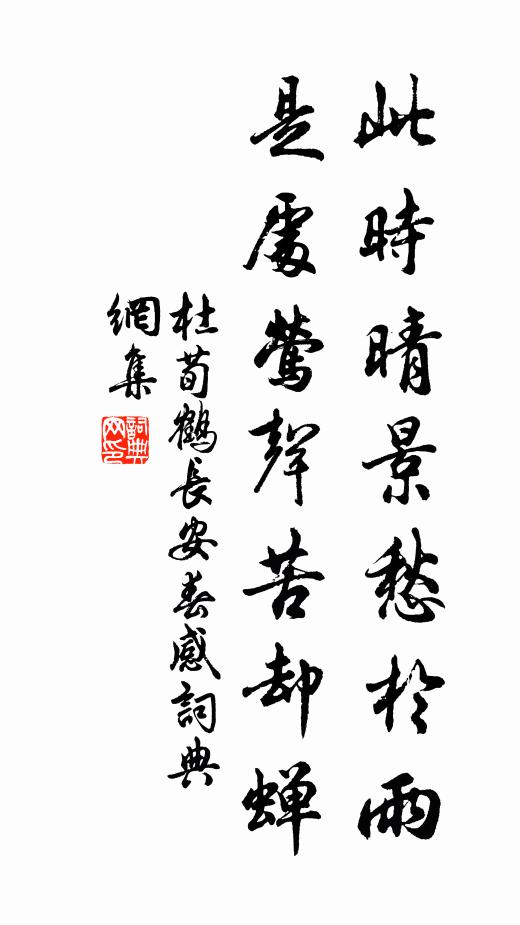 此時晴景愁於雨
是處鶯聲苦却蟬
杜荀鶴長安春感詞典
網集
詞典
网印